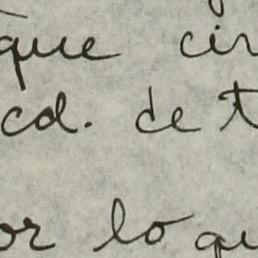 que cir
cd. de t
or lo qu